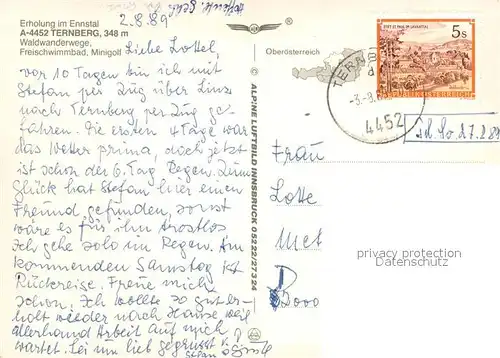 Erholung im Ennstal
A-4452 TERNBERG, 348 m
Waldwanderwege,
Freischwimmbad, Minigolf
2.8.89
Oberösterreich
ALPINE LUFTBILD INNSBRUCK 05222/27324
STIFT ST. PAUL IM LAVANTTAL
5s
REPUBLIK ÖSTERREICH
TERNB
-3.-8.
4452
Liebe Lottel,
vor 10 Tagen bin ich mit
Stefan per Zug über Linz
nach Ternberg per Zug ge-
fahren. Die ersten 4 Tage war
das Wetter prima, doch jetzt
ist schon der 6. Tag Regen. Zum
Glück hat Stefan hier einen
Freund gefunden, sonst
wäre es für ihn trostlos
Ich gehe solo im Regen. Am
kommenden Samstag ist
Rückreise. Freue mich
schon. Ich wollte so gut er-
holt wieder nach Hause weil
allerhand Arbeit auf mich
wartet. Sei nun lieb gegrüsst v.
Stefan
Frau
Lotte
Met
8000
privacy protection
Datenschutz